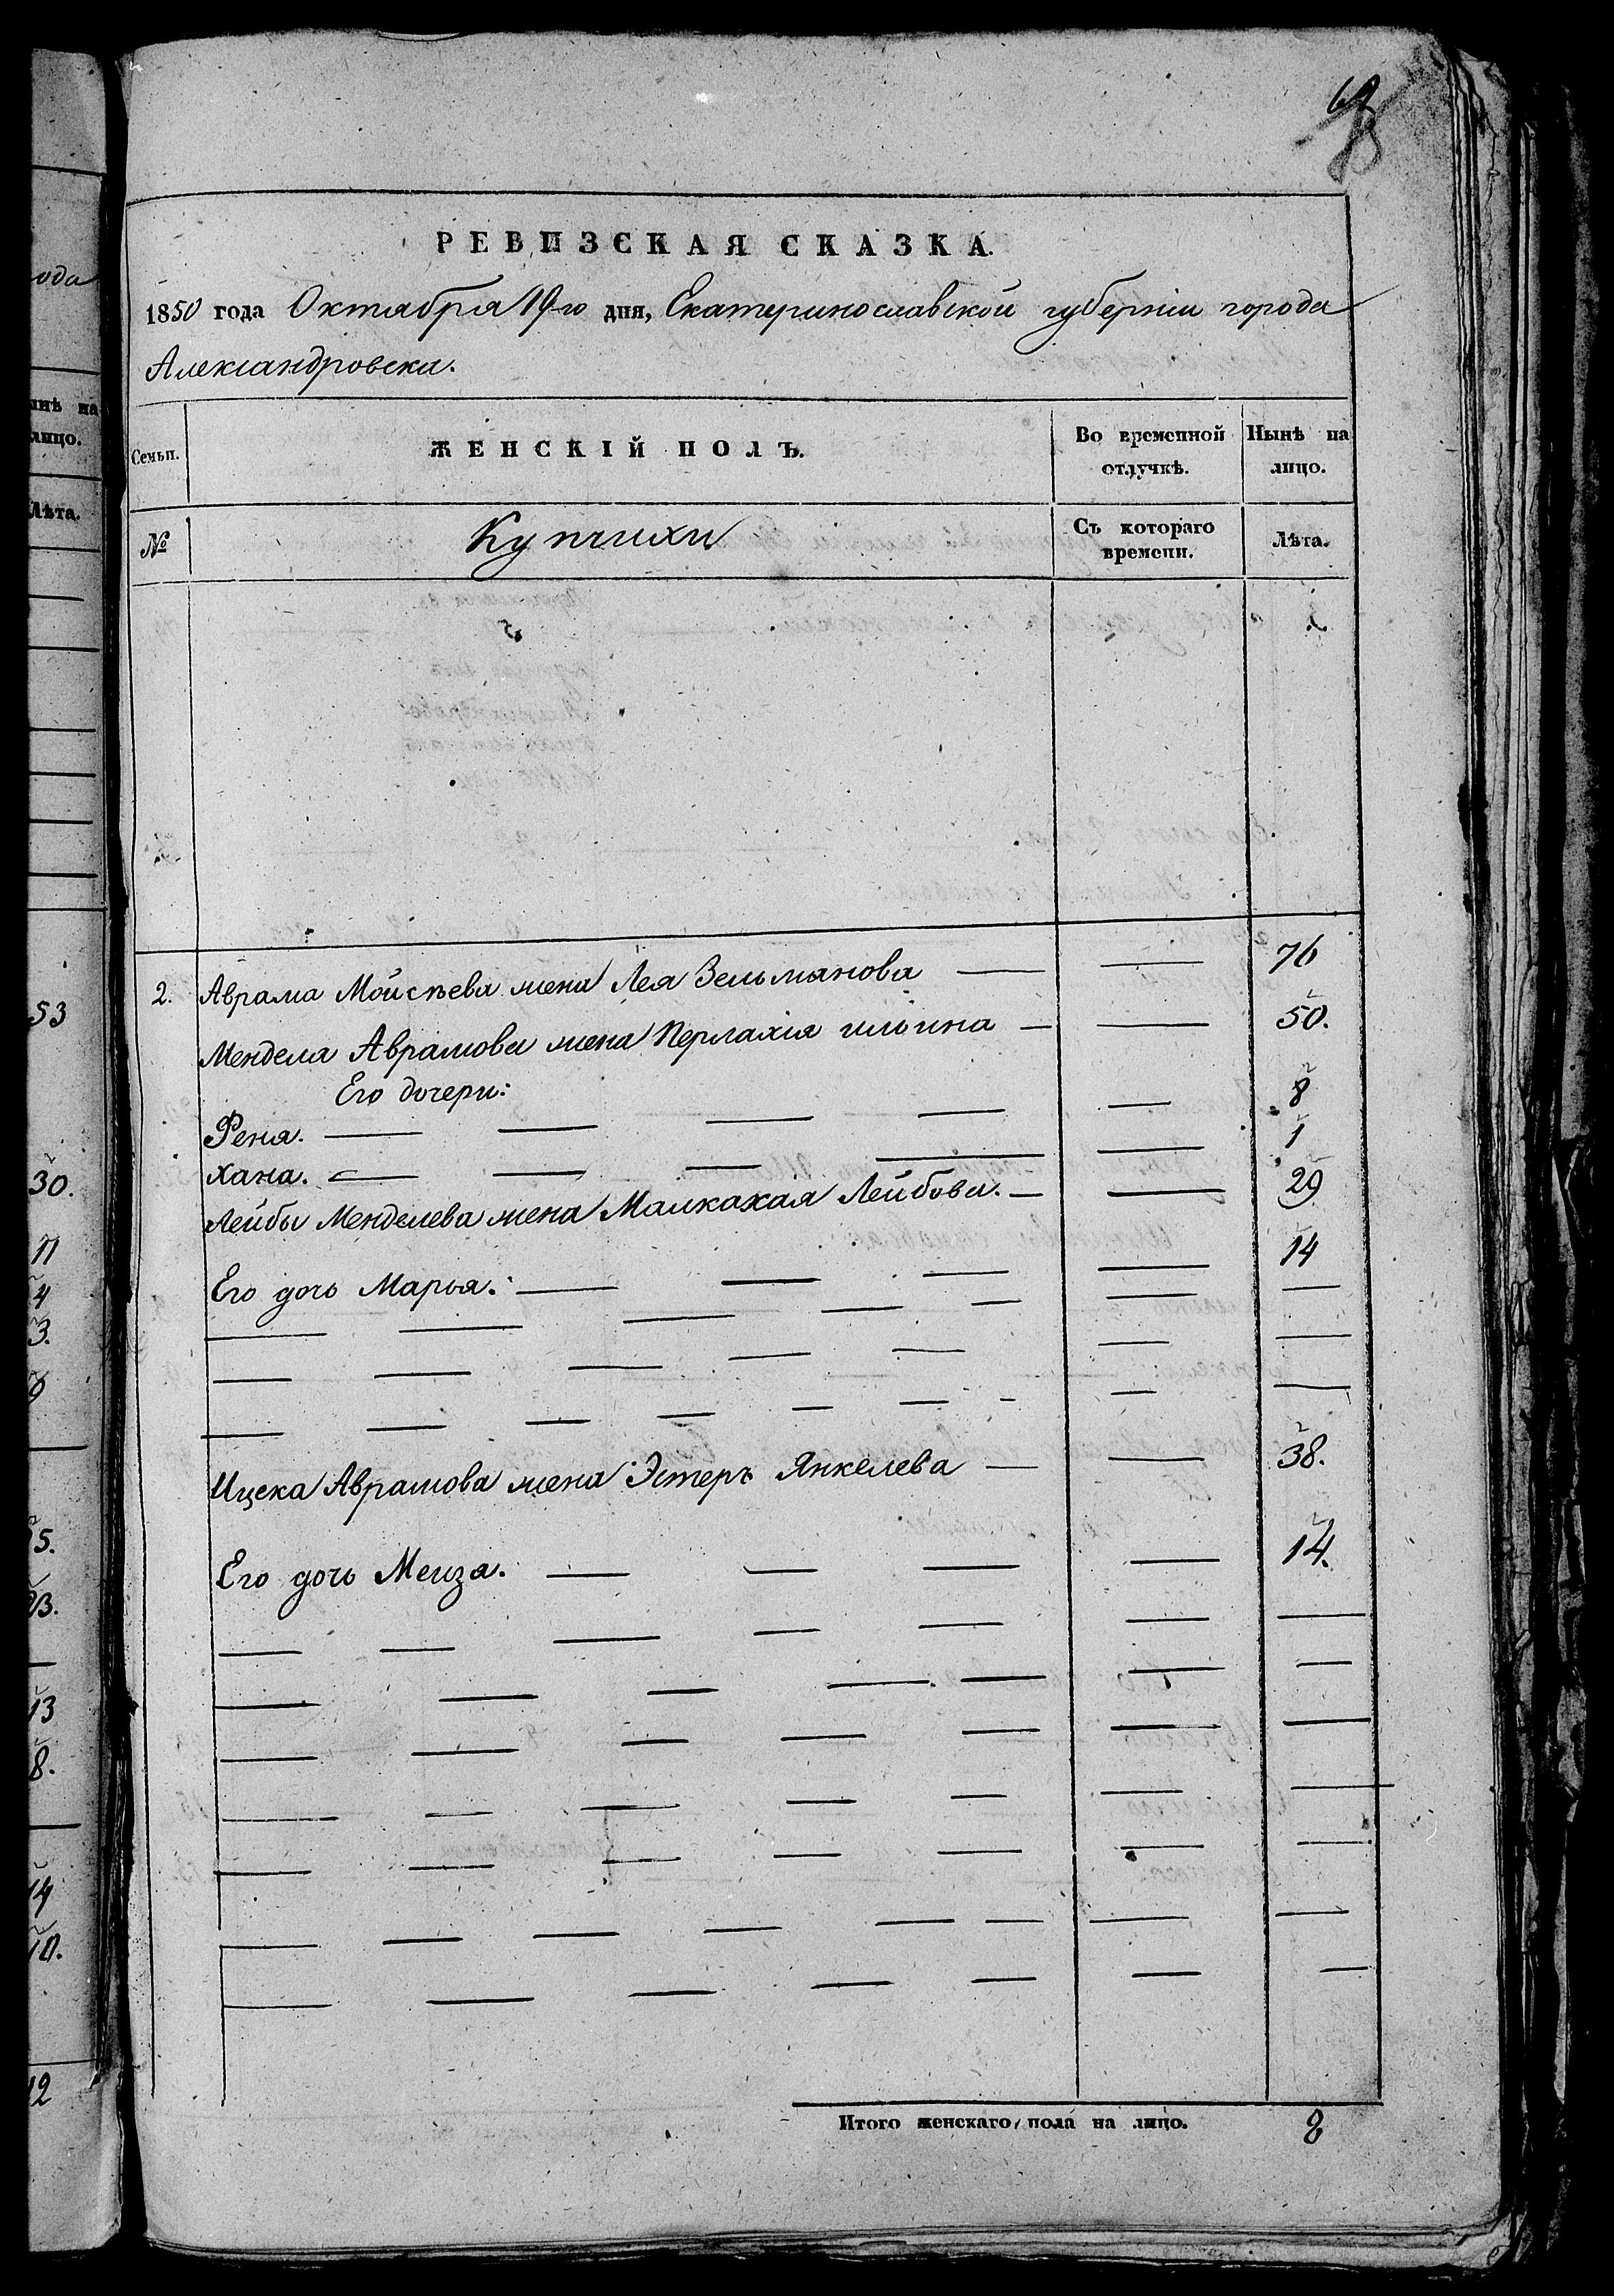 РЕВИЗСКАЯ СКАЗКА.
1850 года Октября 19-го дня, Екатеринославской губерніи города
Александровска.
Семьи. ЖЕНСКІЙ ПОЛЪ. Во временной отлучкѣ. Нынѣ на лицо.
№ Купчихи Съ котораго времени. Лѣта.
2. Аврама Мойсѣева жена Лея Зельманова — — 76
Мендела Аврамова жена Перлахія ильина — — 50.
Его дочери:
Феня. — — — — — 8
Хана. — — — — — 1
Лейбы Менделева жена Малкахая Лейбова. — — 29
Его дочь Марья. — — — — 14
Ицека Аврамова жена Эстеръ Янкелева — — 38.
Его дочь Меиза. — — — — 14.
Итого женскаго пола на лицо. 8
ода
нѣ на
лицо.
Лѣта.
53
30.
11
4
3.
5.
3.
13
8.
14
10.
12